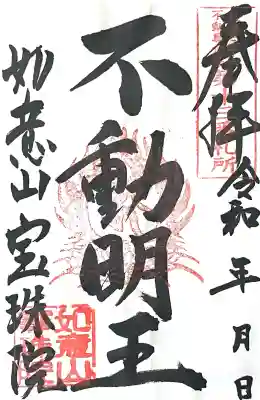 奉拝
令和 年 月 日
不動明王
如意山宝珠院
如意山